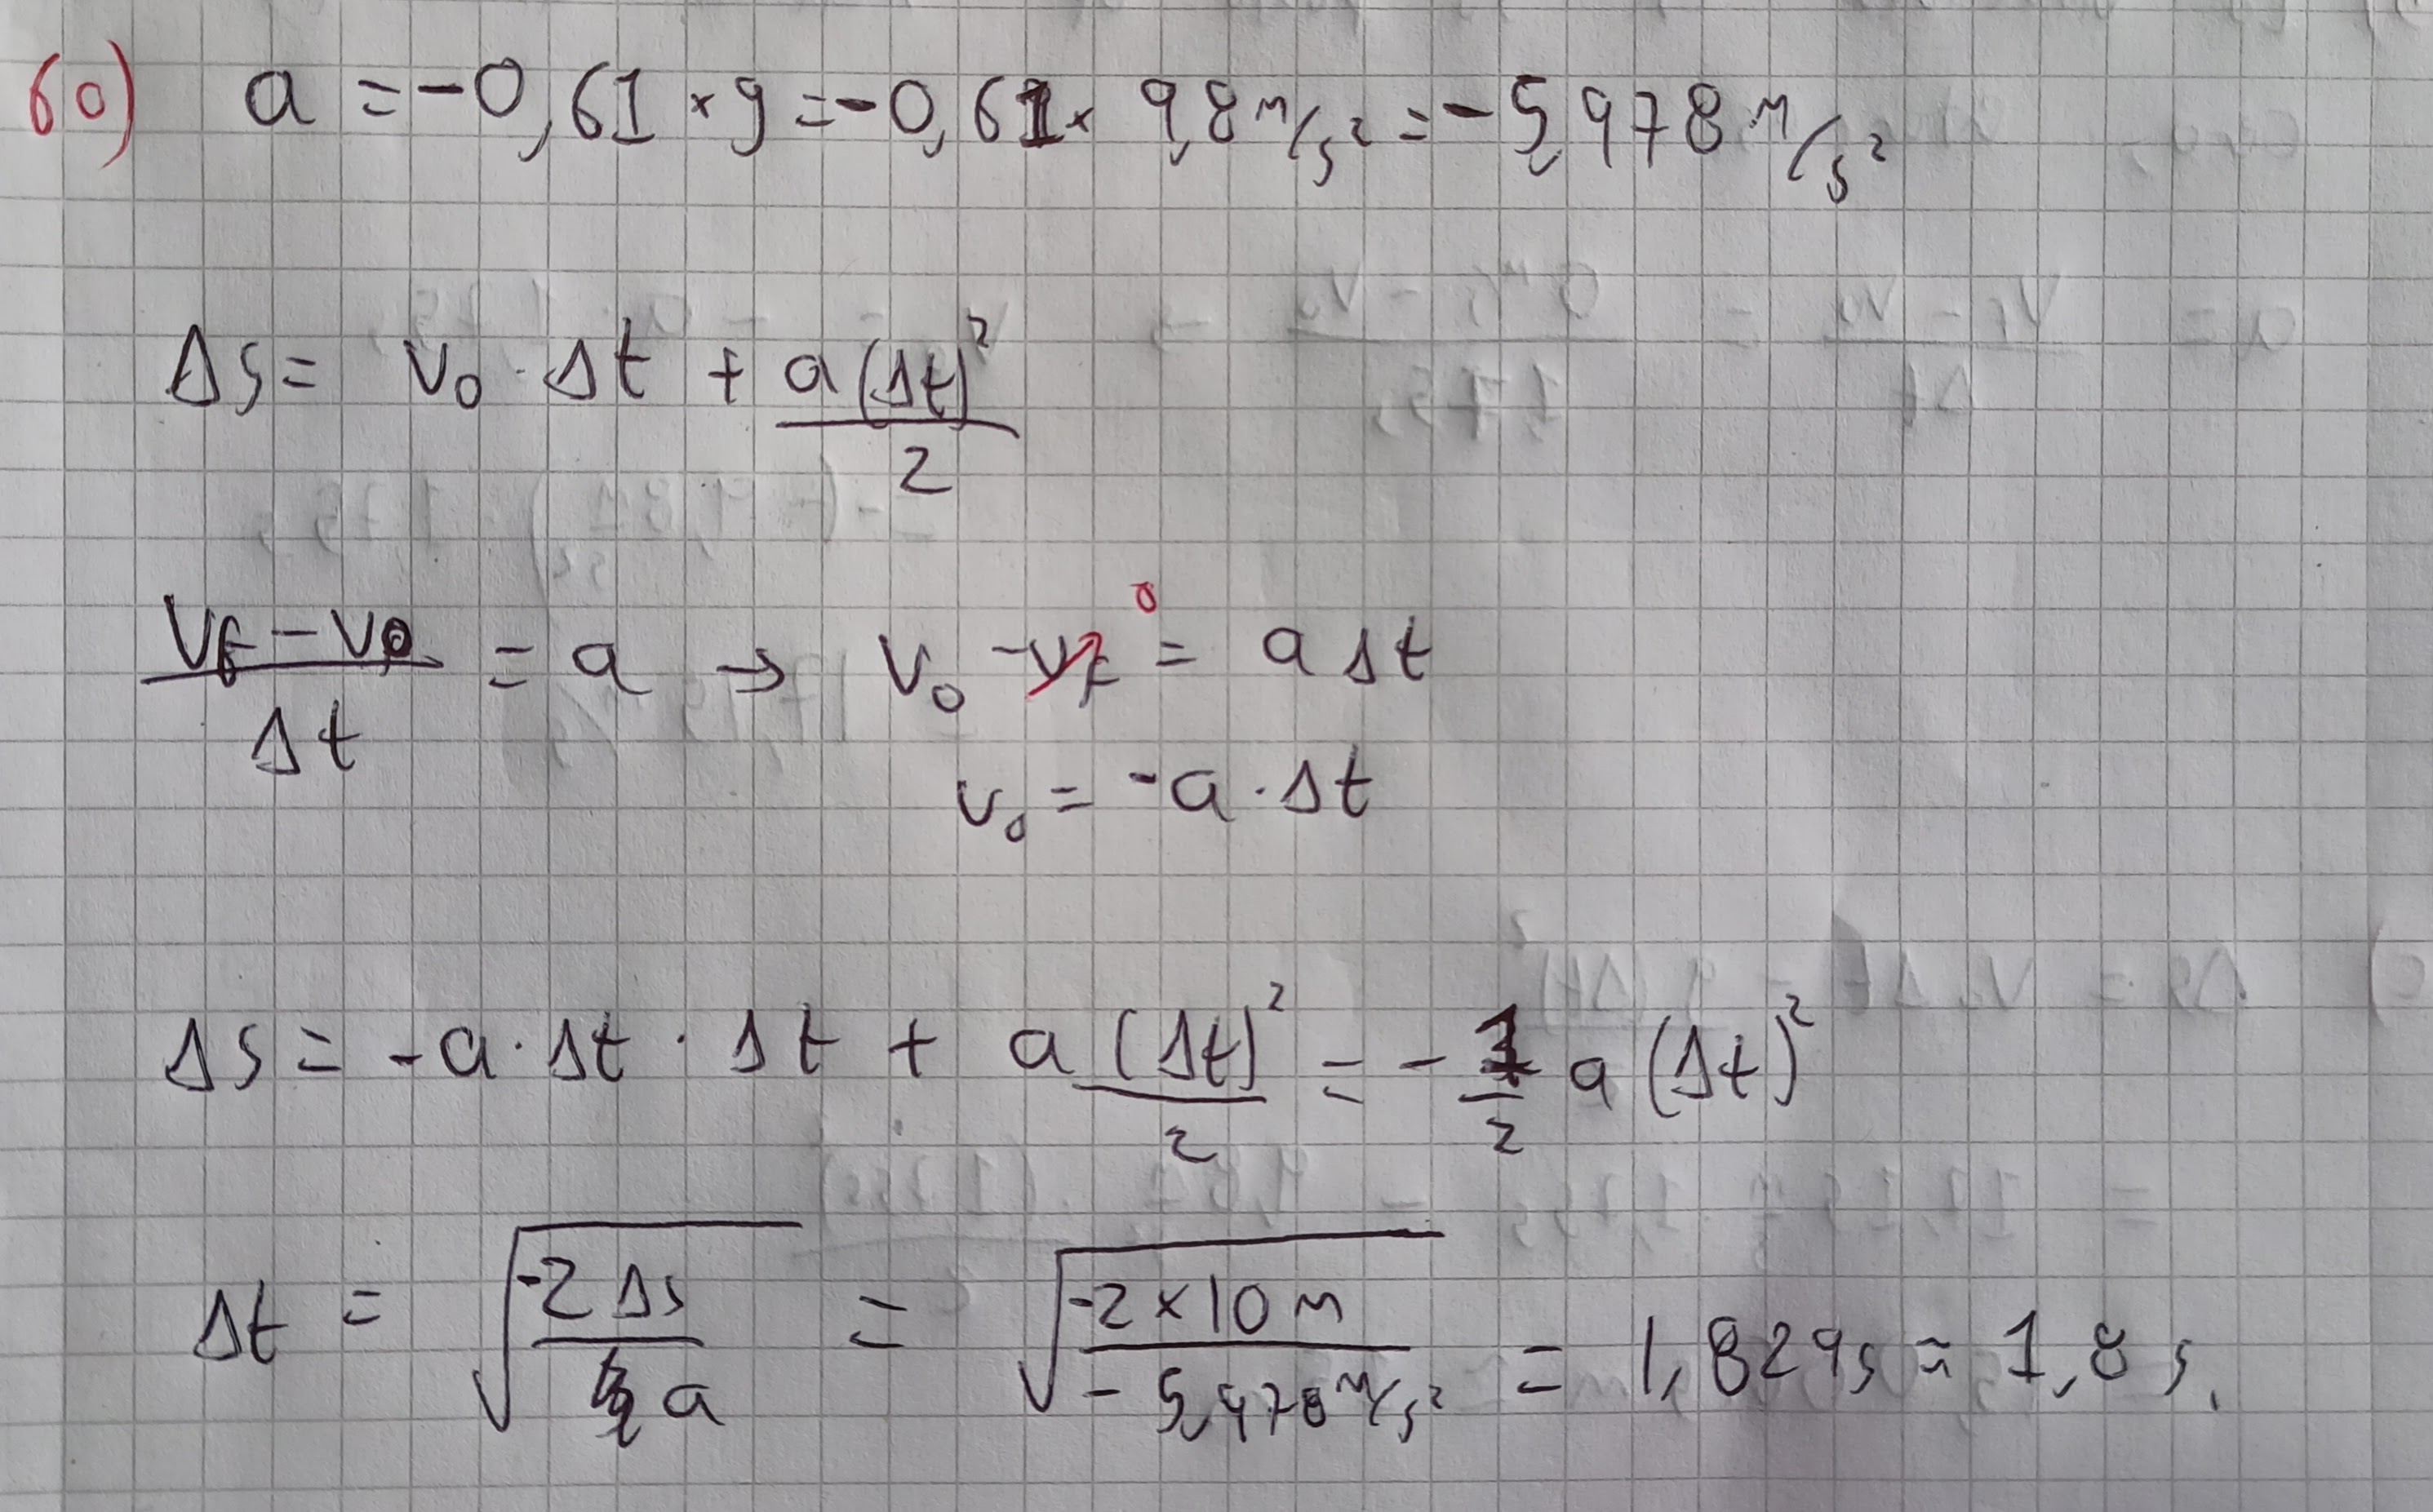 60) a = -0,61 × g = -0,61 × 9,8 m/s² = -5,978 m/s²
Δs = v₀ · Δt + a(Δt)²/2
(v_f - v₀)/Δt = a → v₀ - v_f = a Δt
0
v₀ = -a · Δt
Δs = -a · Δt · Δt + a (Δt)²/2 = - 1/2 a (Δt)²
Δt = √(-2 Δs / a) = √(-2 × 10 m / -5,978 m/s²) = 1,829 s ≈ 1,8 s.